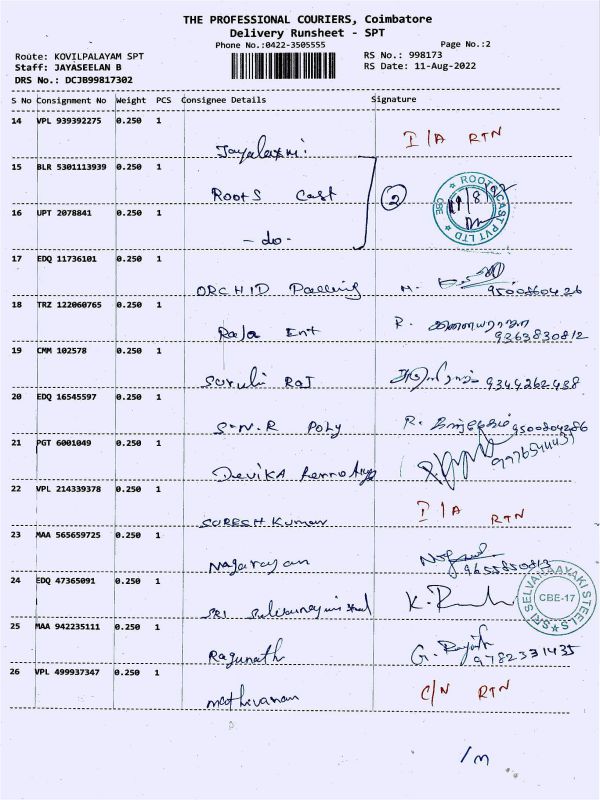 THE PROFESSIONAL COURIERS, Coimbatore
Delivery Runsheet - SPT
Phone No.:0422-3505555 Page No.:2
Route: KOVILPALAYAM SPT RS No.: 998173
Staff: JAYASEELAN B RS Date: 11-Aug-2022
DRS No.: DCJB99817302
S No Consignment No Weight PCS Consignee Details Signature
14 VPL 939392275 0.250 1
Jayalaxmi I/A RTN
15 BLR 5301113939 0.250 1
Roots Cast 2 ROOTS CAST PVT LTD CBE
16 UPT 2078841 0.250 1
- do -
17 EDQ 11736101 0.250 1
ORCHID M. 9500860426
18 TRZ 122060765 0.250 1
Raja Ent R. 9363830812
19 CMM 102578 0.250 1
Suruli Raj 9344262438
20 EDQ 16545597 0.250 1
S.N.R Poly R. 9500204286
21 PGT 6001049 0.250 1
Devika
22 VPL 214339378 0.250 1
SURESH Kumar I/A RTN
23 MAA 565659725 0.250 1
Nagarajan
24 EDQ 47365091 0.250 1
SRI SRI SELVANAYAKI STEELS CBE-17
25 MAA 942235111 0.250 1
Ragunath G. 9782331435
26 VPL 499937347 0.250 1
mathivanan C/N RTN